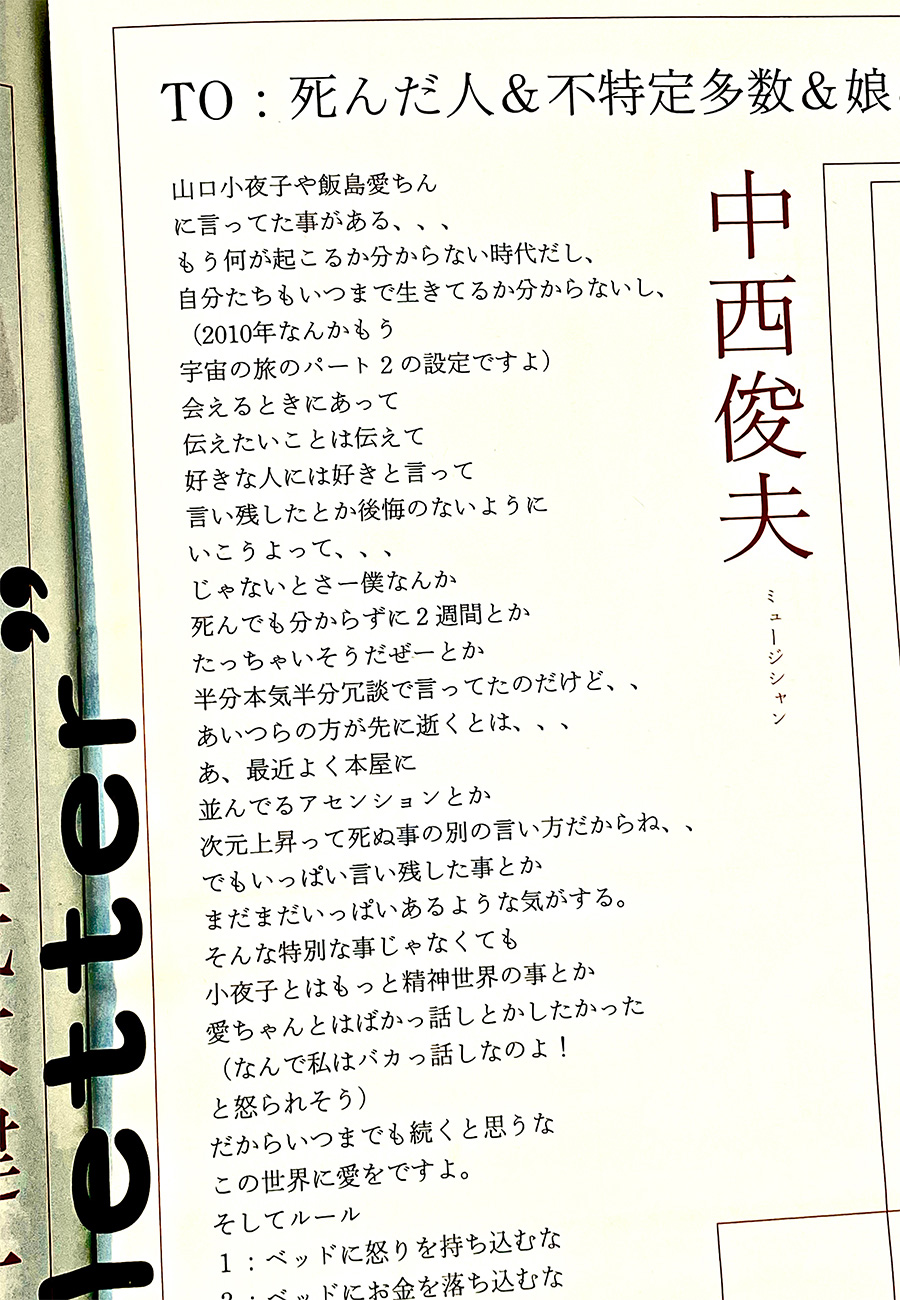 TO：死んだ人＆不特定多数＆娘
中西俊夫
ミュージシャン
山口小夜子や飯島愛ちん
に言ってた事がある、、、
もう何が起こるか分からない時代だし、
自分たちもいつまで生きてるか分からないし、
（2010年なんかもう
宇宙の旅のパート2の設定ですよ）
会えるときにあって
伝えたいことは伝えて
好きな人には好きと言って
言い残したとか後悔のないように
いこうよって、、、
じゃないとさー僕なんか
死んでも分からずに2週間とか
たっちゃいそうだぜーとか
半分本気半分冗談で言ってたのだけど、、
あいつらの方が先に逝くとは、、、
あ、最近よく本屋に
並んでるアセンションとか
次元上昇って死ぬ事の別の言い方だからね、、
でもいっぱい言い残した事とか
まだまだいっぱいあるような気がする。
そんな特別な事じゃなくても
小夜子とはもっと精神世界の事とか
愛ちゃんとはばかっ話しとかしたかった
（なんで私はバカっ話しなのよ！
と怒られそう）
だからいつまでも続くと思うな
この世界に愛をですよ。
そしてルール
1：ベッドに怒りを持ち込むな
2：ベッドにお金を落ち込むな
letter”